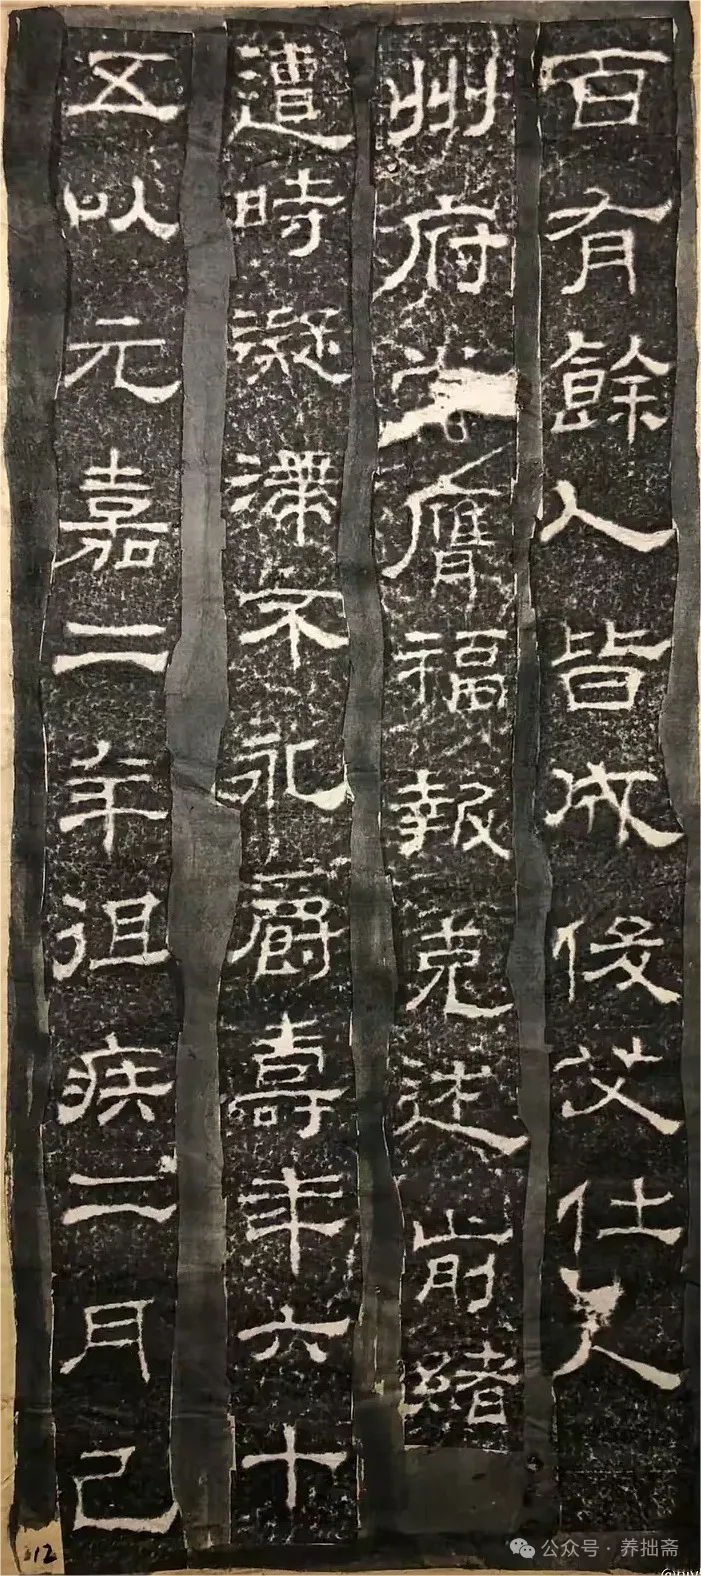 百有餘人皆成俊艾仕入
州府膺福報克述前緒
遭時凝滯不永爵壽年六十
五以元嘉二年徂疾二月己
112
公众号·养拙斋